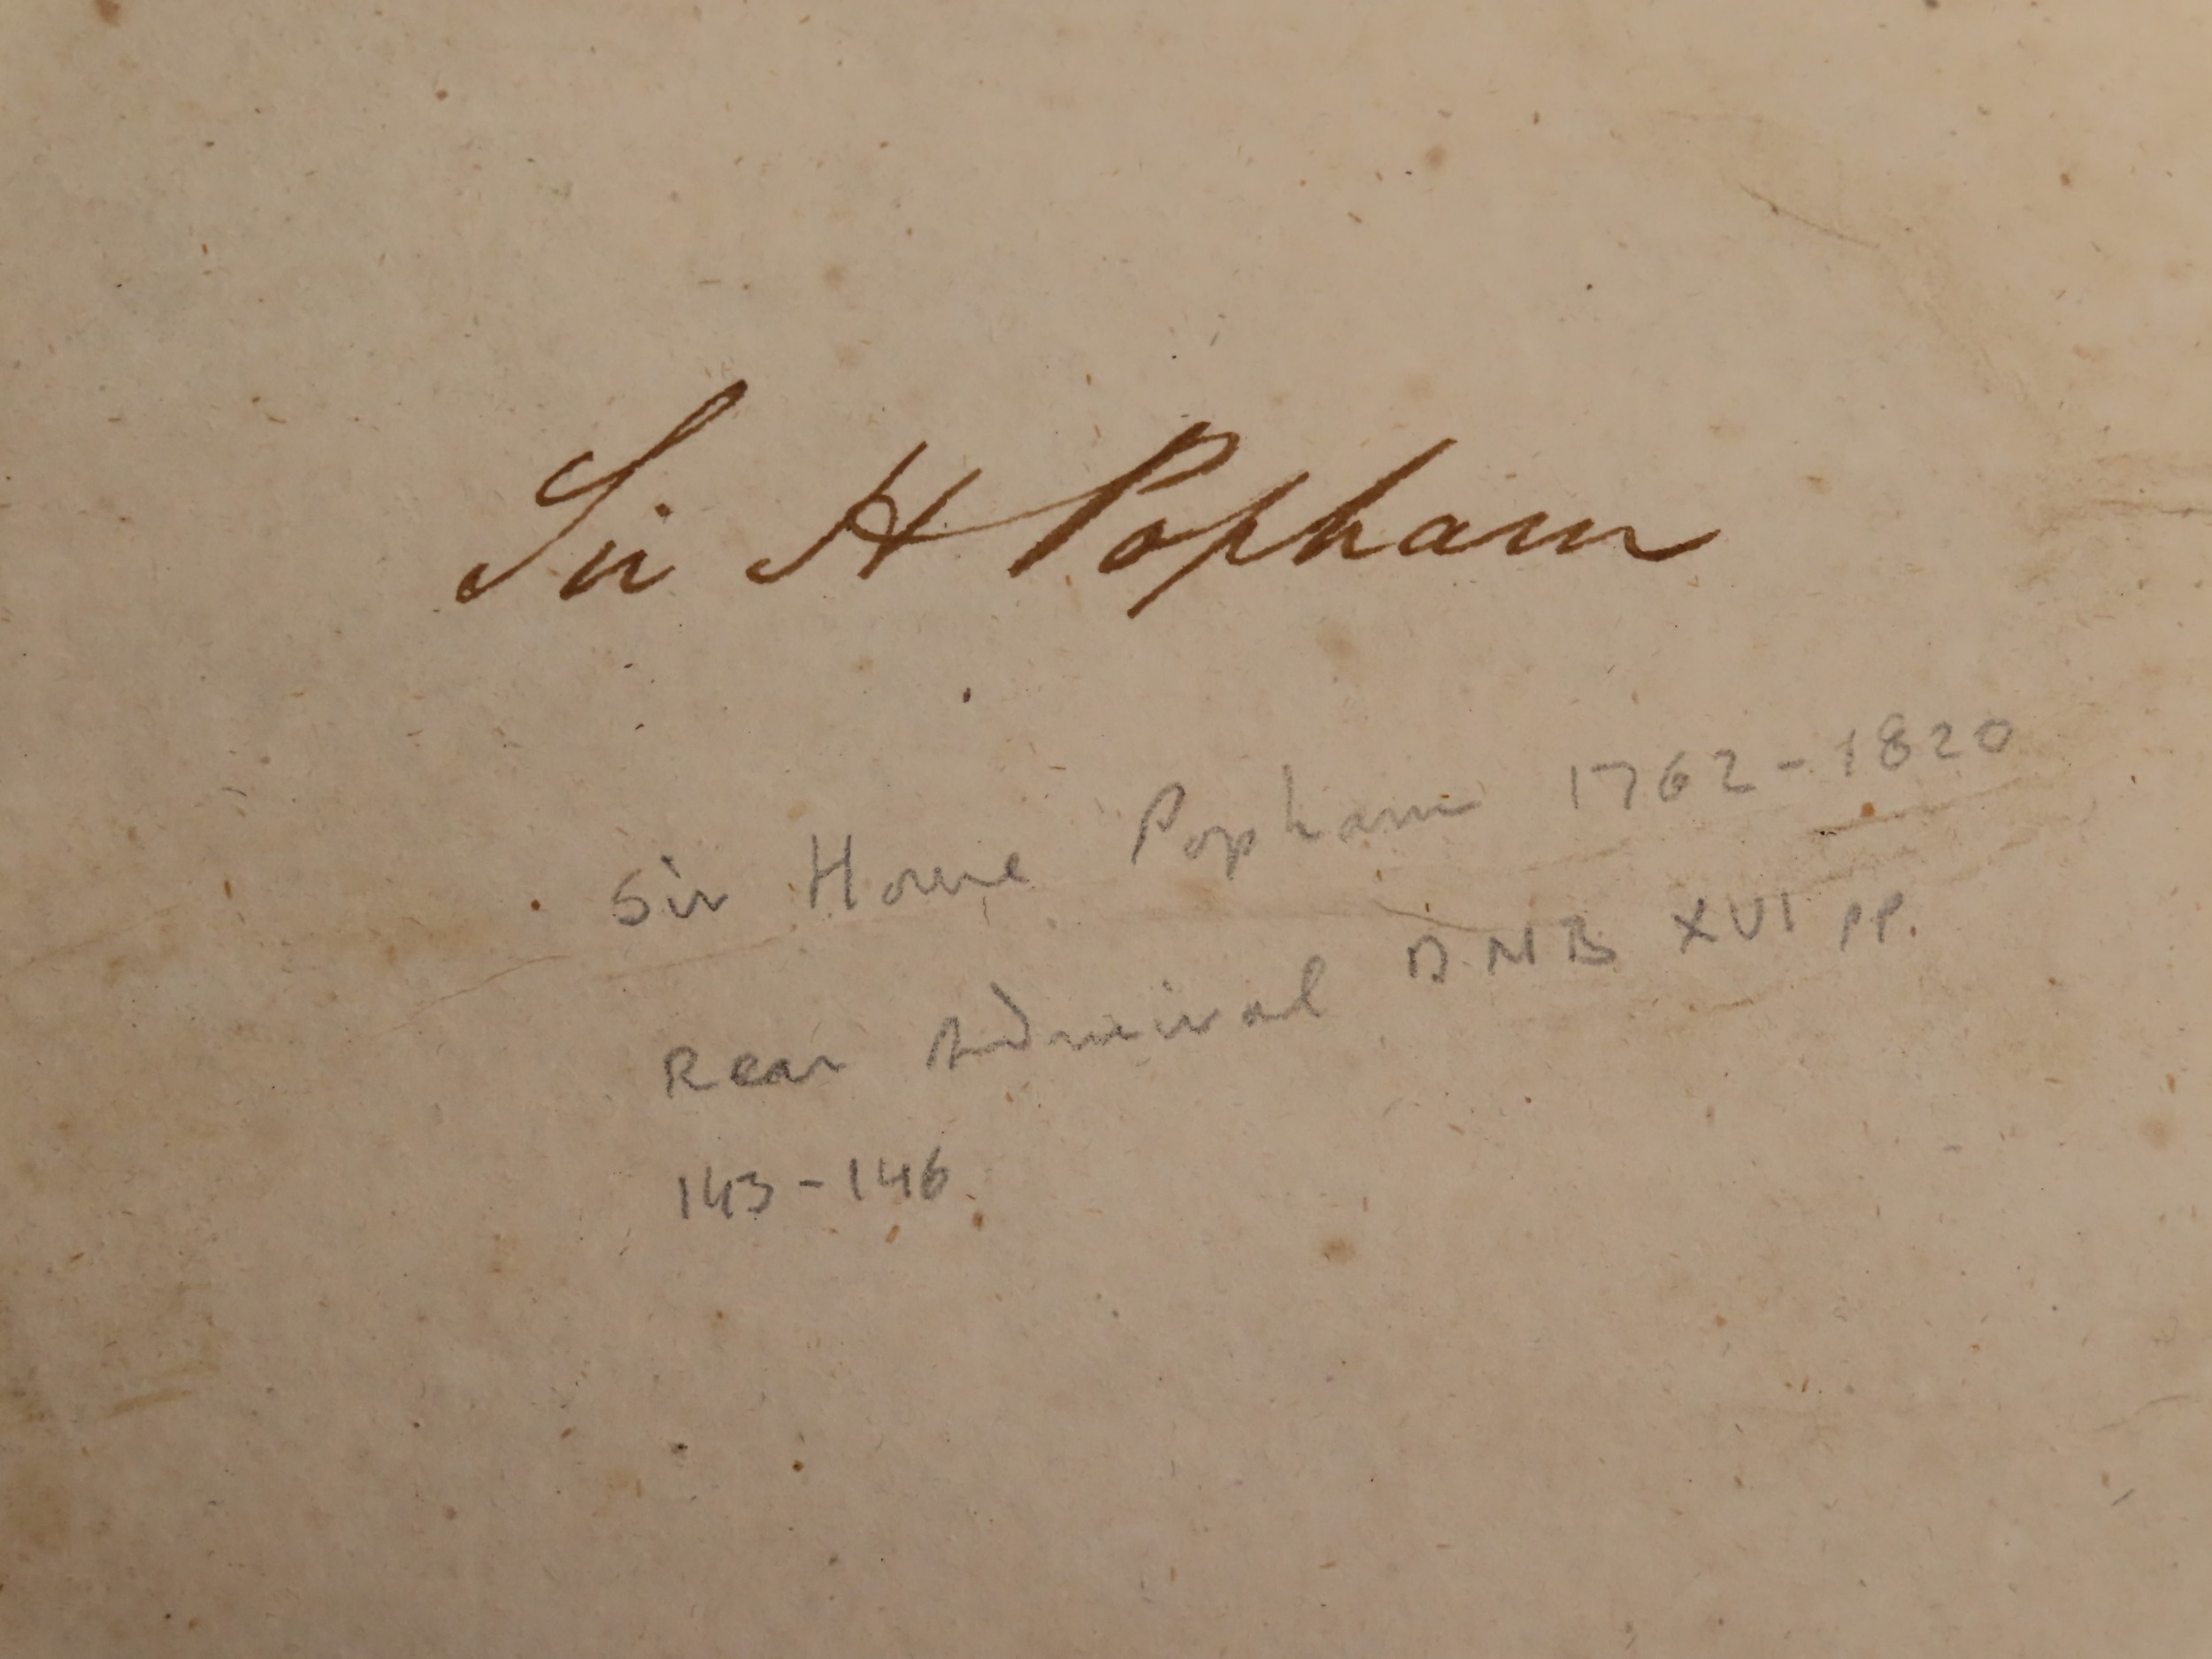 Sir H Popham
Sir Home Popham 1762-1820
Rear Admiral DNB XVI pp.
143-146